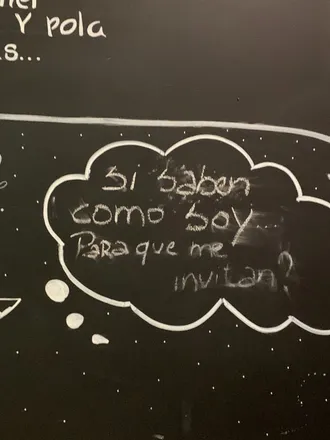 Y pola
s...
Si saben
como soy...
Para que me
invitan?